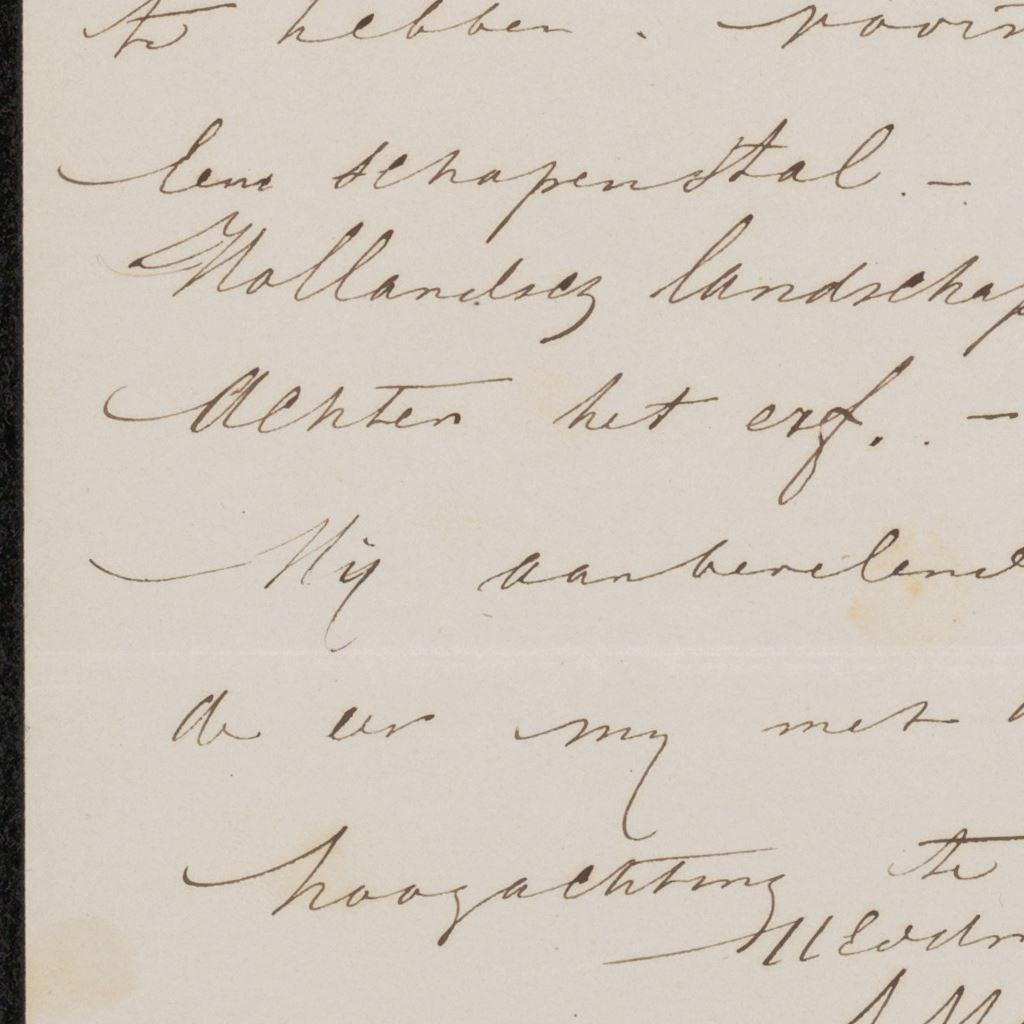 te hebben. voor
Een schapenstal. –
Hollandsch landschap
Achter het erf. –
Mij aanbevelend
de eer mij met
hoogachting te
UEd